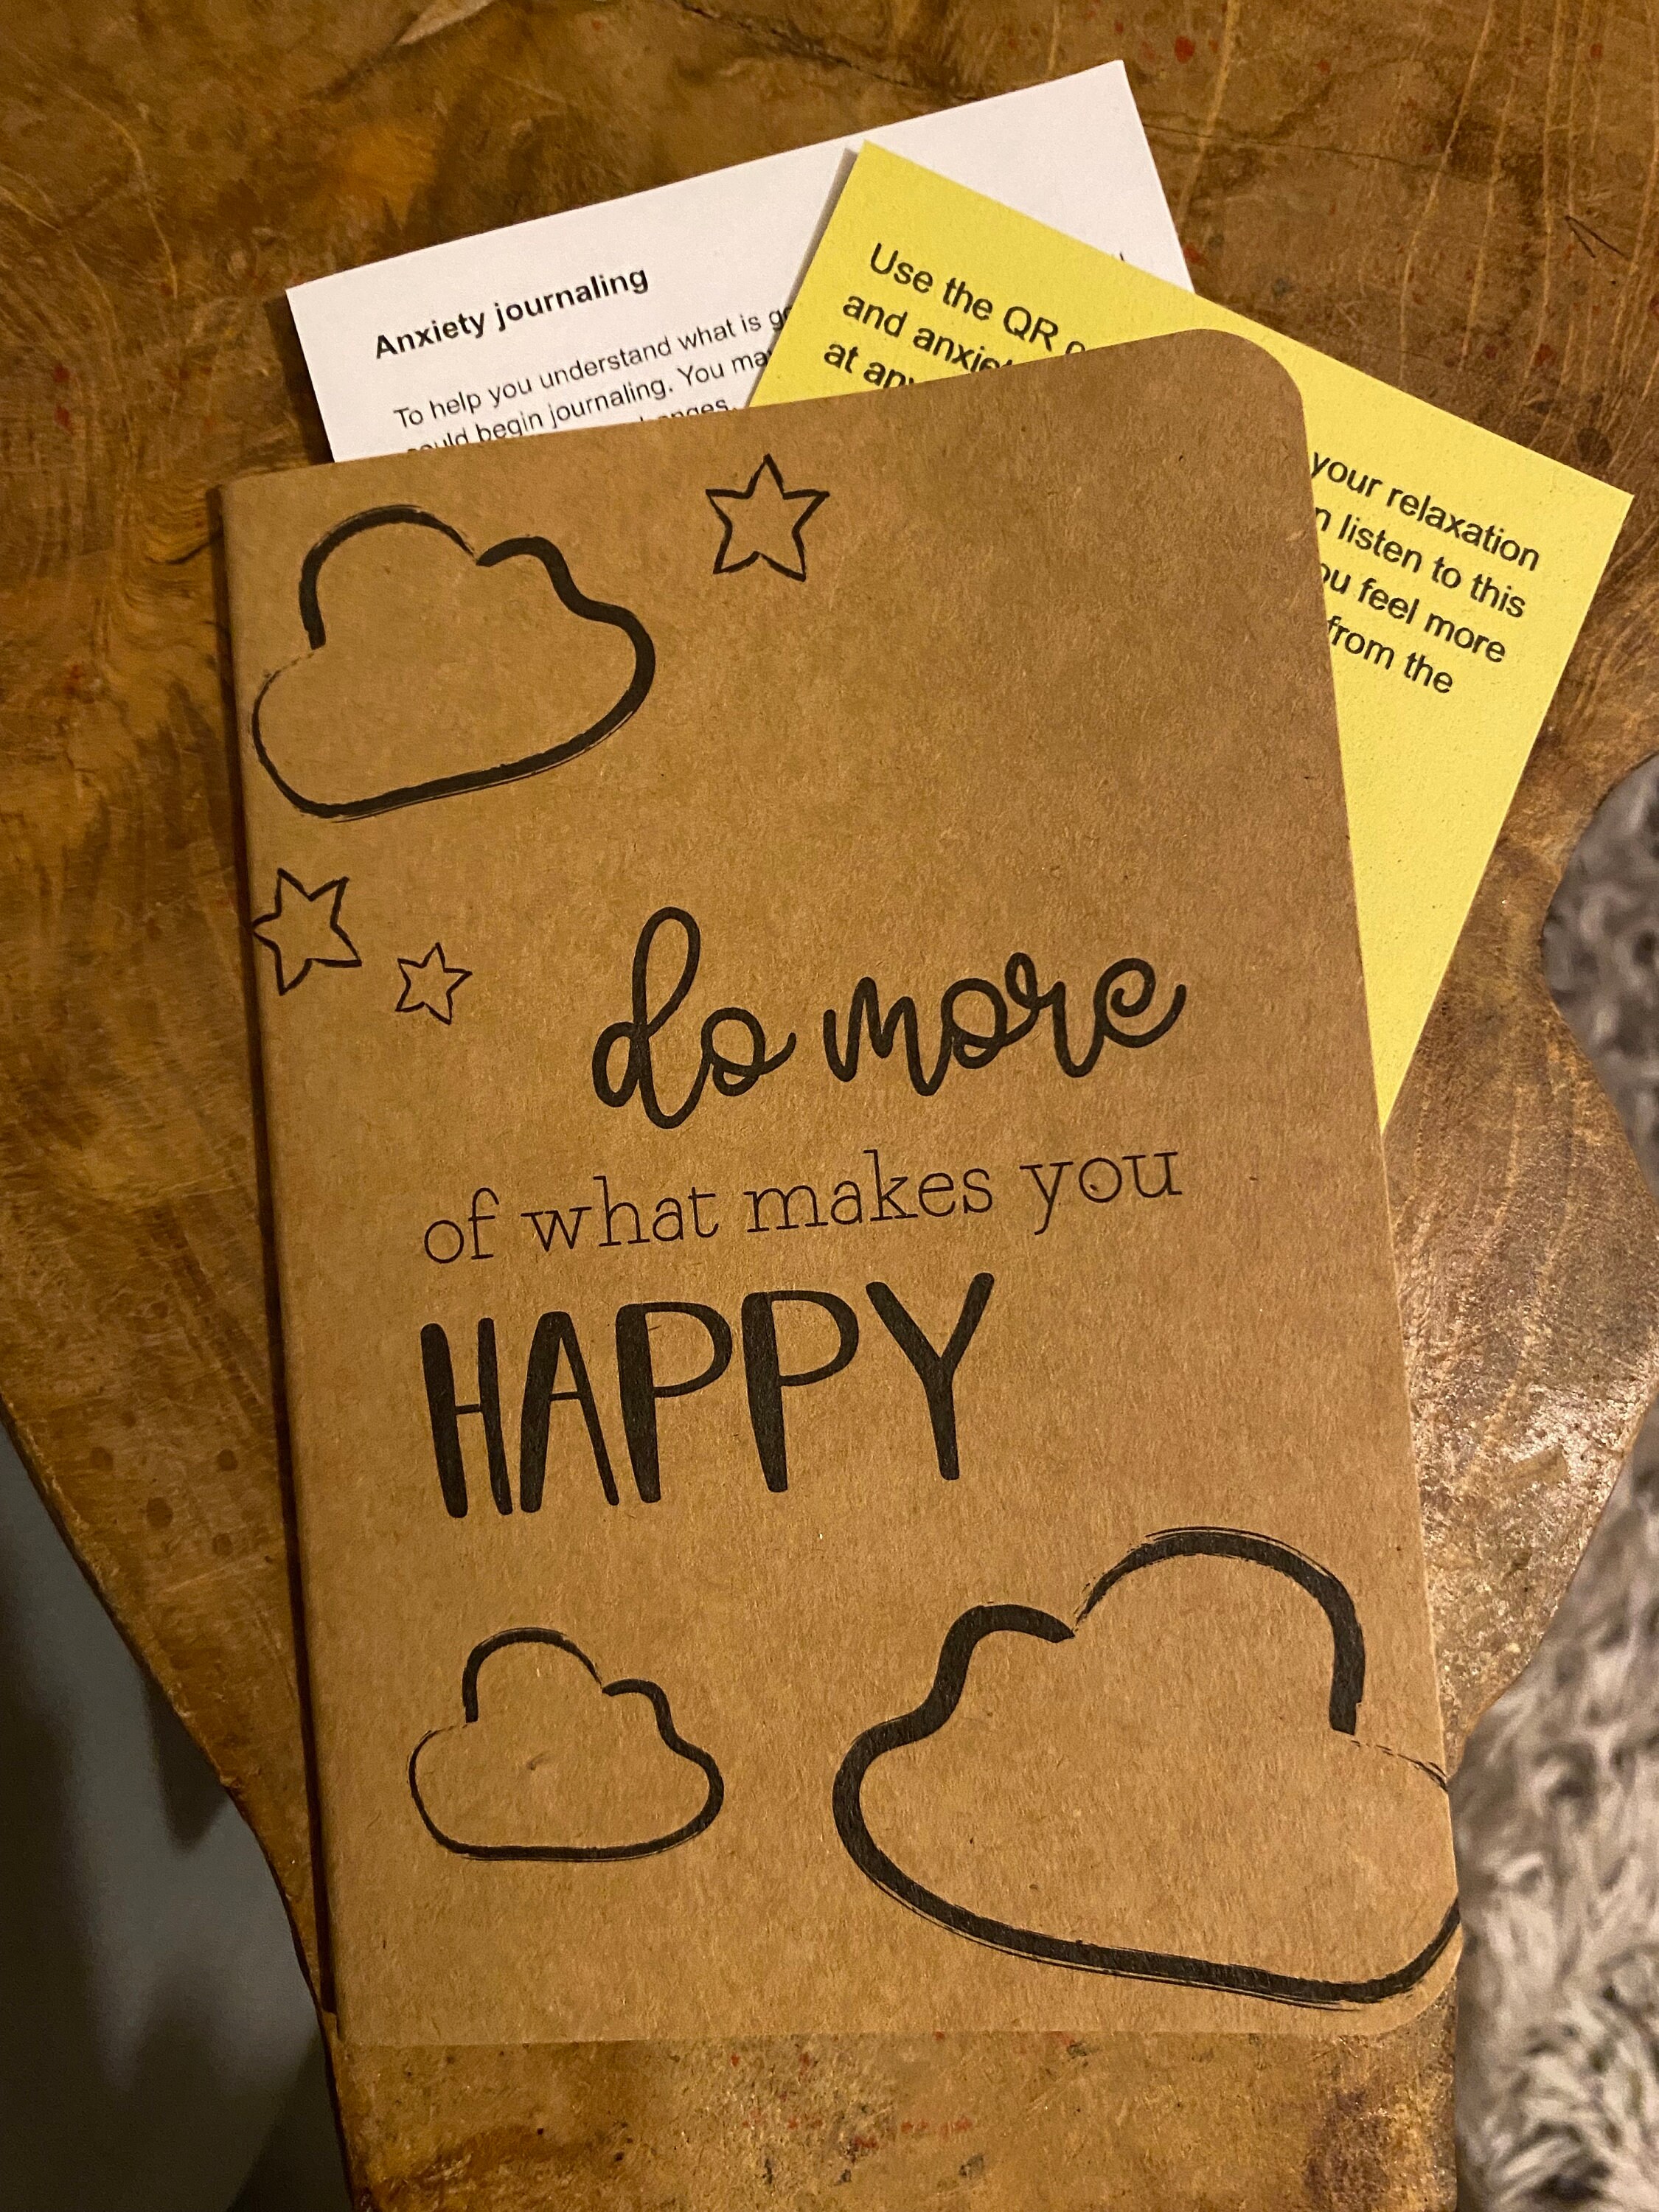 Anxiety journaling
To help you understand what is
could begin journaling. You may
Use the QR
and anxiety
at any
your relaxation
listen to this
you feel more
from the
do more
of what makes you
HAPPY